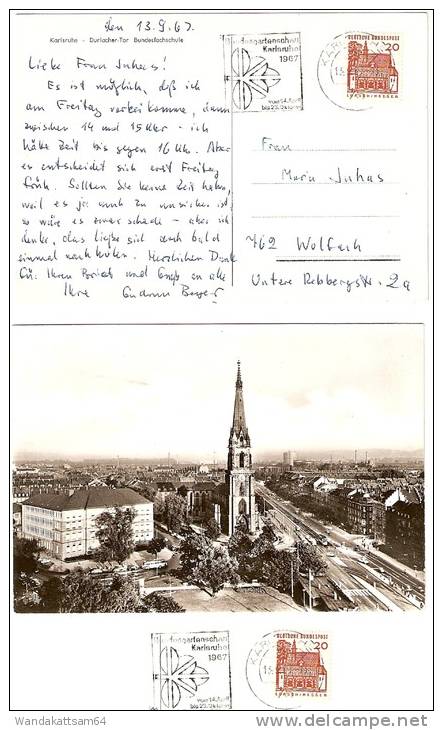 den 13.9.67.
Karlsruhe - Durlacher-Tor Bundesfachschule
Liebe Frau Juhas!
Es ist möglich, daß ich
am Freitag vorbeikomme, dann
zwischen 14 und 15 Uhr - ich
hätte Zeit bis gegen 16 Uhr. Aber
es entscheidet sich erst Freitag
früh. Sollten Sie keine Zeit haben,
weil es ja auch zu unsicher ist,
so wäre es zwar schade - aber ich
denke, das ließe sich auch bald
einmal nachholen. Herzlichen Dank
für Ihren Brief und Gruß an alle
Ihre Gudrun
Bundesgartenschau
Karlsruhe
1967
vom 14. April
DEUTSCHE BUNDESPOST
20
LORSCH/HESSEN
Frau
Maria Juhas
762 Wolfach
Untere Rebbergstr. 2a
Bundesgartenschau
Karlsruhe
1967
vom 14. April
DEUTSCHE BUNDESPOST
20
LORSCH/HESSEN
Wandakattsam64